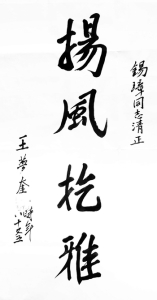 錫璋同志清正
揚風扢雅
王夢奎
八十五